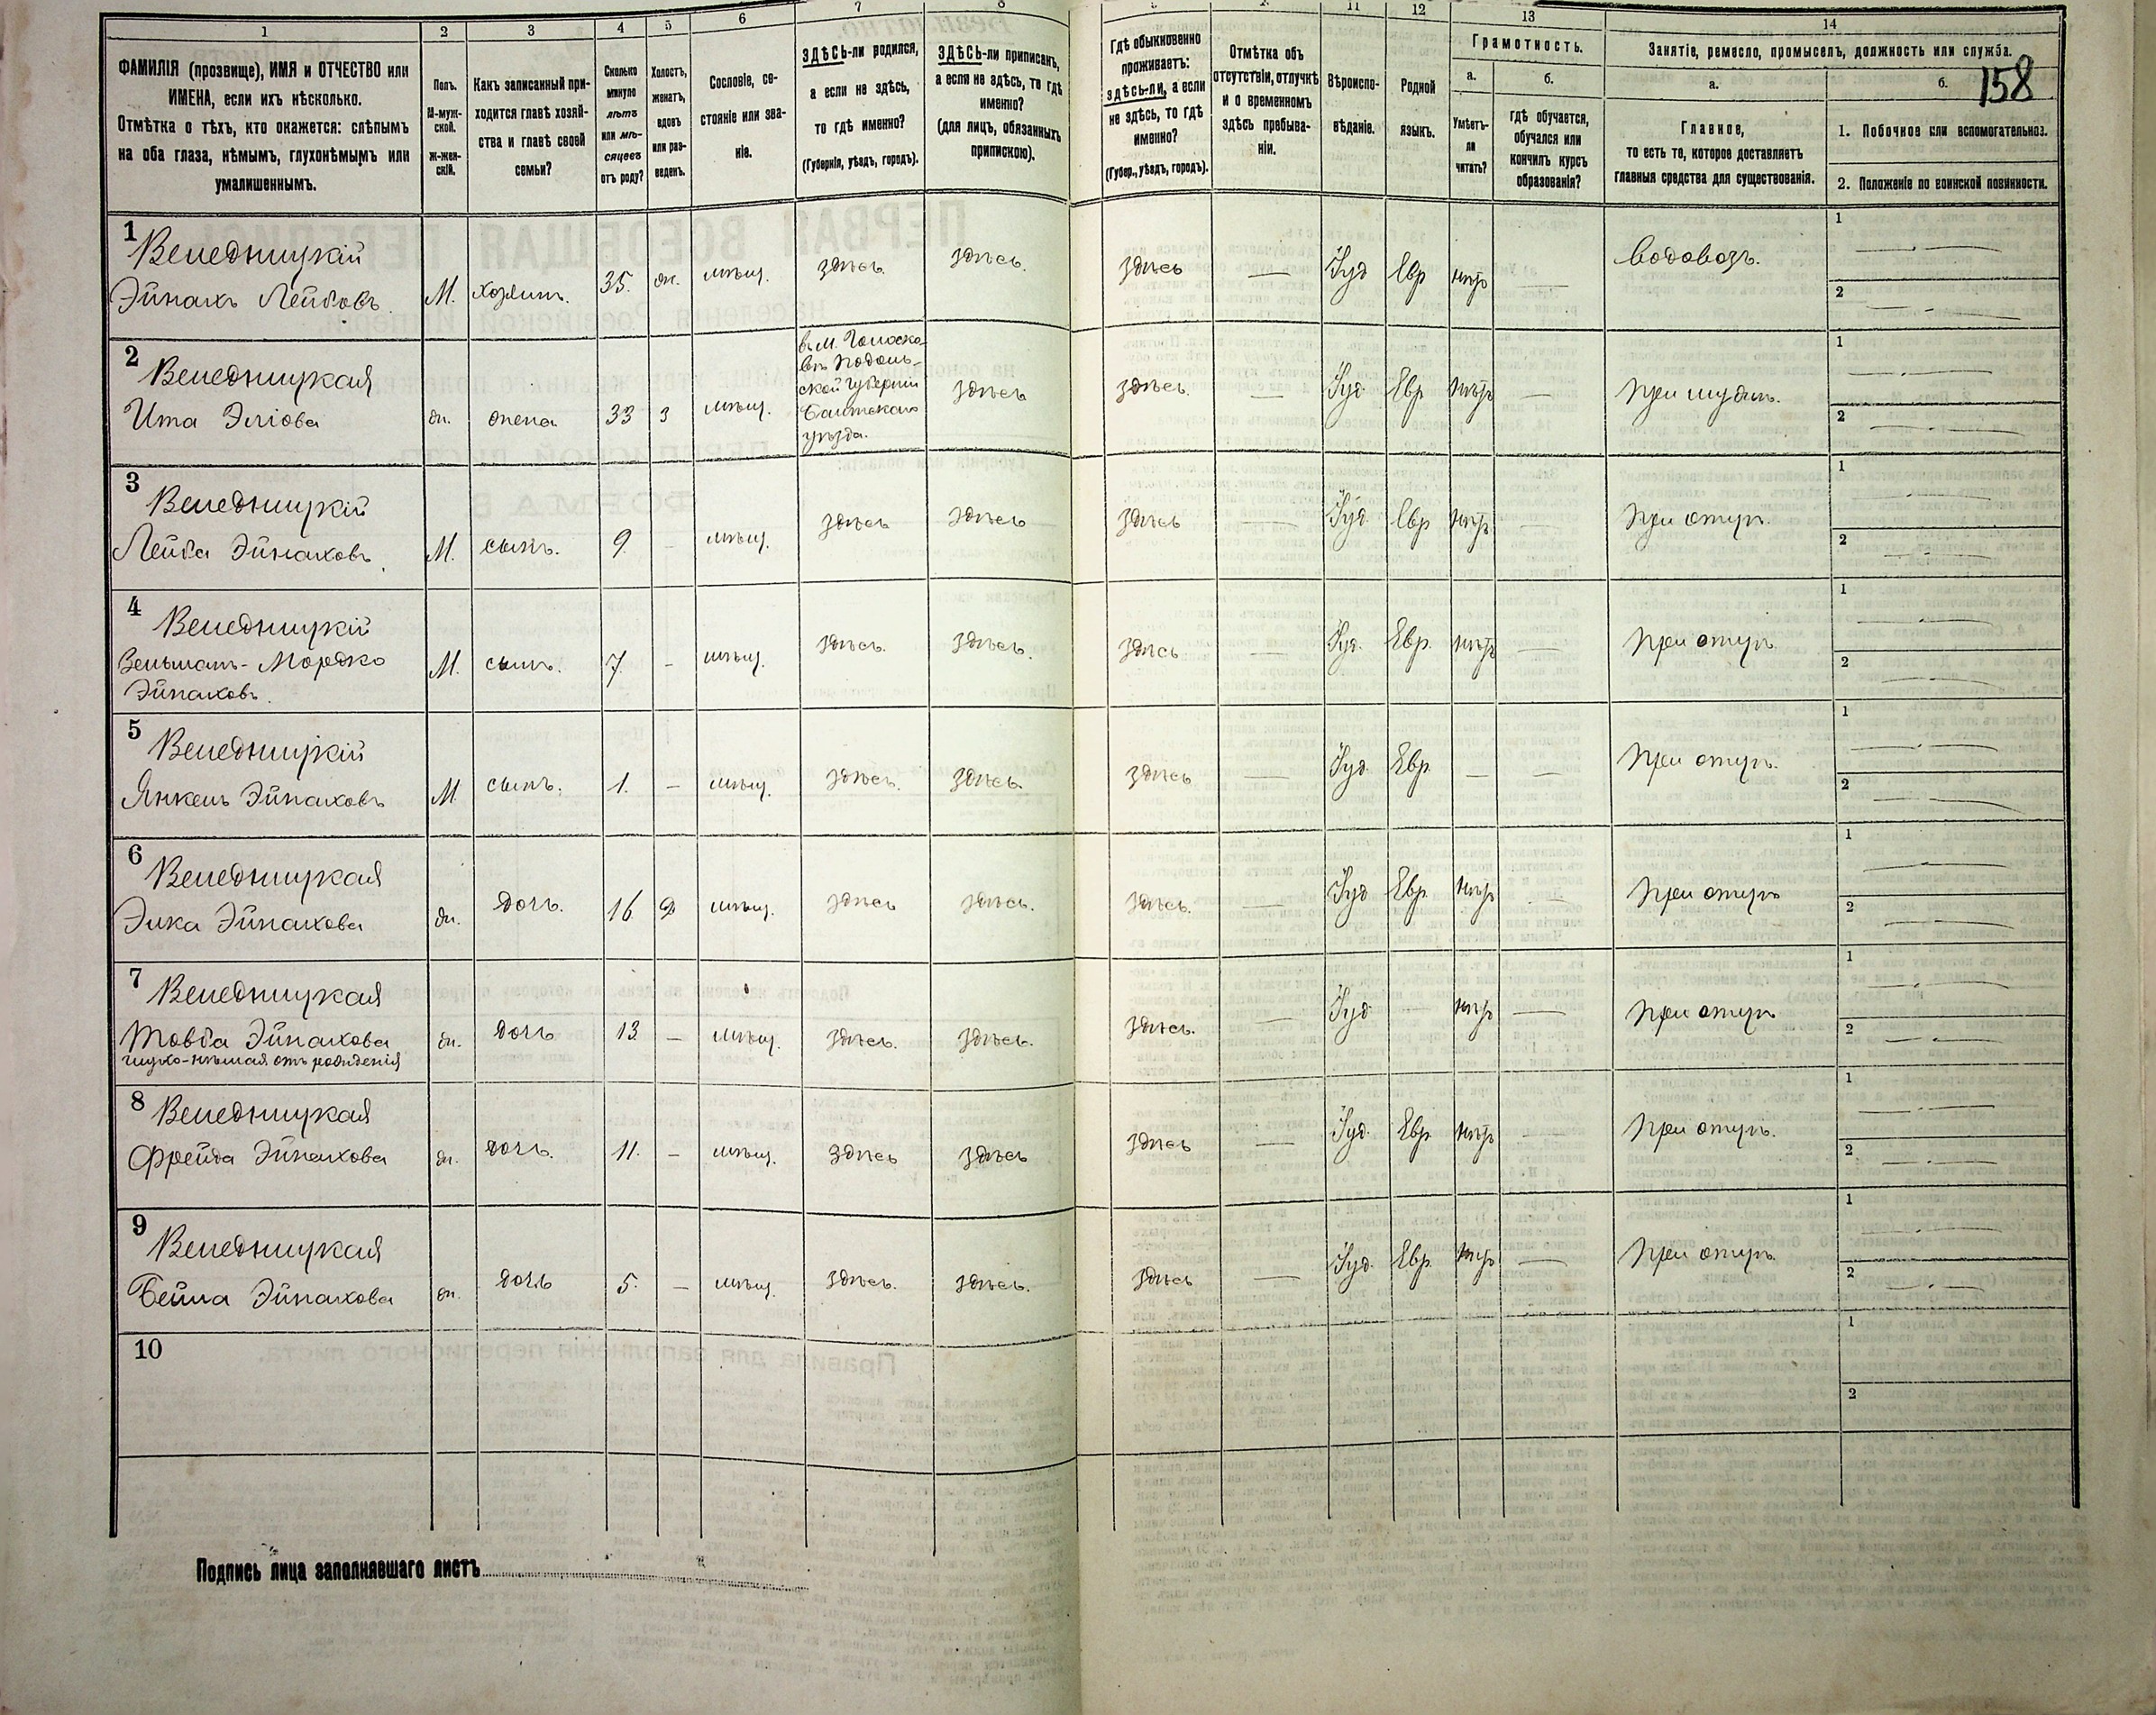 1 2 3 4 5 6 7 8
11 12 13 14
ФАМИЛІЯ (прозвище), ИМЯ и ОТЧЕСТВО или
ИМЕНА, если ихъ нѣсколько.
Отмѣтка о тѣхъ, кто окажется: слѣпымъ
на оба глаза, нѣмымъ, глухонѣмымъ или
умалишеннымъ.
Полъ.
М-муж-
ской.
Ж-жен-
скій.
Какъ записанный при-
ходится главѣ хозяй-
ства и главѣ своей
семьи?
Сколько
минуло
лѣтъ
или мѣ-
сяцевъ
отъ роду?
Холостъ,
женатъ,
вдовъ
или раз-
веденъ.
Сословіе, со-
стояніе или зва-
ніе.
ЗДѢСЬ-ли родился,
а если не здѣсь,
то гдѣ именно?
(Губернія, уѣздъ, городъ).
ЗДѢСЬ-ли приписанъ,
а если не здѣсь, то гдѣ
именно?
(для лицъ, обязанныхъ
припискою).
Гдѣ обыкновенно
проживаетъ:
здѣсь-ли, а если
не здѣсь, то гдѣ
именно?
(Губер., уѣздъ, городъ).
Отмѣтка объ
отсутствіи, отлучкѣ
и о временномъ
здѣсь пребыва-
ніи.
Вѣроиспо-
вѣданіе.
Родной
языкъ.
Грамотность.
а.
Умѣетъ-
ли
читать?
б.
гдѣ обучается,
обучался или
кончилъ курсъ
образованія?
Занятіе, ремесло, промыселъ, должность или служба.
158
а.
Главное,
то есть то, которое доставляетъ
главныя средства для существованія.
б.
1. Побочное или вспомогательное.
2. Положеніе по воинской повинности.
1
Веледницкій
Эйнахъ Лейбовъ М. хозяинъ. 35. ж. мѣщ. здѣсь. здѣсь. здѣсь — Іуд Евр нѣтъ — водовозъ. 1 2
2
Веледницкая
Ита Эліова ж. жена 33 з мѣщ.
въ М. Голоско-
вѣ Подоль-
ской губерніи
Балтскаго
уѣзда.
здѣсь здѣсь. — Іуд. Евр нѣтъ — при мужѣ. 1 2
3
Веледницкій
Лейба Эйнаховъ М. сынъ. 9. — мѣщ. здѣсь здѣсь здѣсь — Іуд. Евр нѣтъ — при отцѣ. 1 2
4
Веледницкій
Зельманъ-Мордко
Эйнаховъ. М. сынъ. 7. — мѣщ. здѣсь. здѣсь. здѣсь — Іуд. Евр. нѣтъ — при отцѣ 1 2
5
Веледницкій
Янкель Эйнаховъ М. сынъ. 1. — мѣщ. здѣсь. здѣсь. здѣсь — Іуд. Евр. — — при отцѣ. 1 2
6
Веледницкая
Элка Эйнахова ж. дочь. 16 д мѣщ. здѣсь здѣсь. здѣсь. — Іуд Евр. нѣтъ — при отцѣ 1 2
7
Веледницкая
Товба Эйнахова
глухо-нѣмая отъ рожденія ж. дочь 13 — мѣщ. здѣсь. здѣсь. здѣсь. — Іуд — нѣтъ — при отцѣ 1 2
8
Веледницкая
Фрейда Эйнахова ж. дочь. 11. — мѣщ. здѣсь здѣсь здѣсь — Іуд. Евр. нѣтъ — при отцѣ. 1 2
9
Веледницкая
Бейла Эйнахова ж. дочь 5. — мѣщ. здѣсь. здѣсь. здѣсь — Іуд. Евр. нѣтъ — при отцѣ. 1 2
10 1 2
Подпись лица заполнявшаго листъ